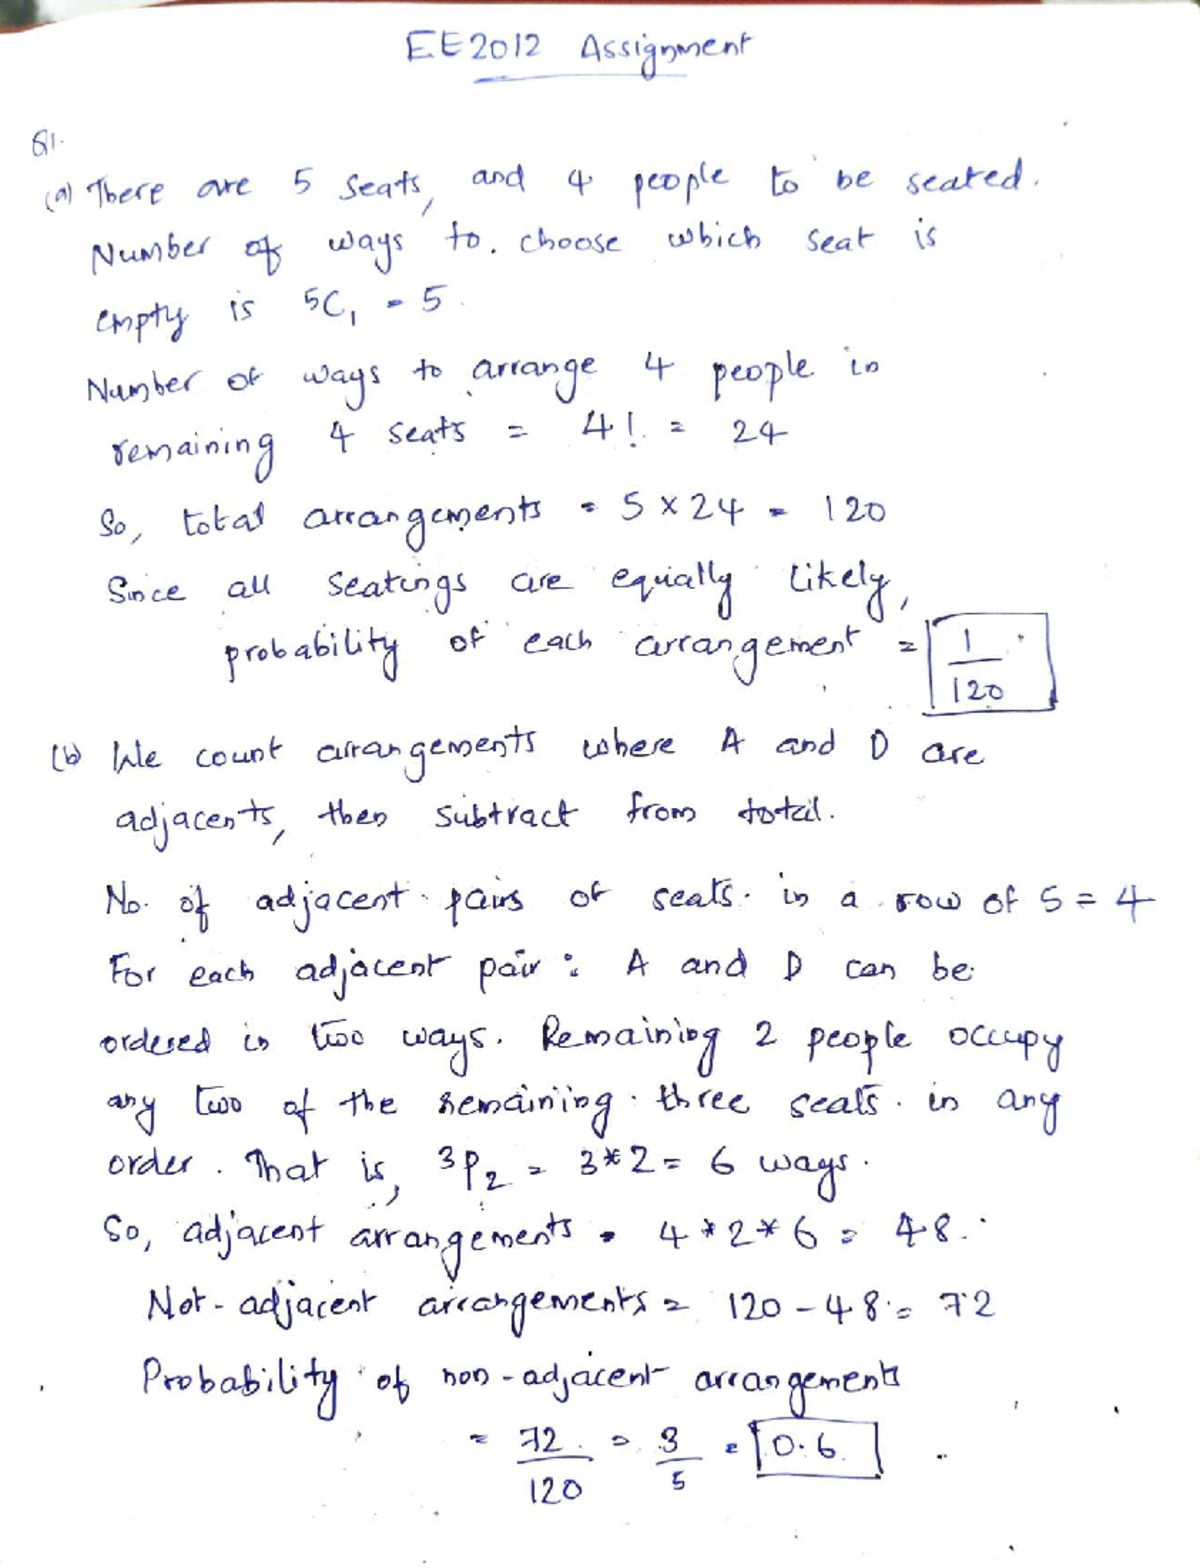 EE2012 Assignment
Q1.
(a) There are 5 seats, and 4 people to be seated.
Number of ways to choose which seat is
empty is 5C₁ = 5.
Number of ways to arrange 4 people in
remaining 4 seats = 4! = 24
So, total arrangements = 5 × 24 = 120
Since all seatings are equally likely,
probability of each arrangement = 1/120
(b) We count arrangements where A and D are
adjacents, then subtract from total.
No. of adjacent pairs of seats in a row of 5 = 4
For each adjacent pair : A and D can be
ordered in two ways. Remaining 2 people occupy
any two of the remaining three seats in any
order. That is, ³P₂ = 3*2 = 6 ways.
So, adjacent arrangements = 4*2*6 = 48.
Not-adjacent arrangements = 120 - 48 = 72
Probability of non-adjacent arrangements
= 72/120 = 3/5 = 0.6